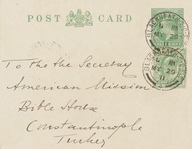 POST CARD
To the the Secretary
American Mission
Bible House
Constantinople
Turkey